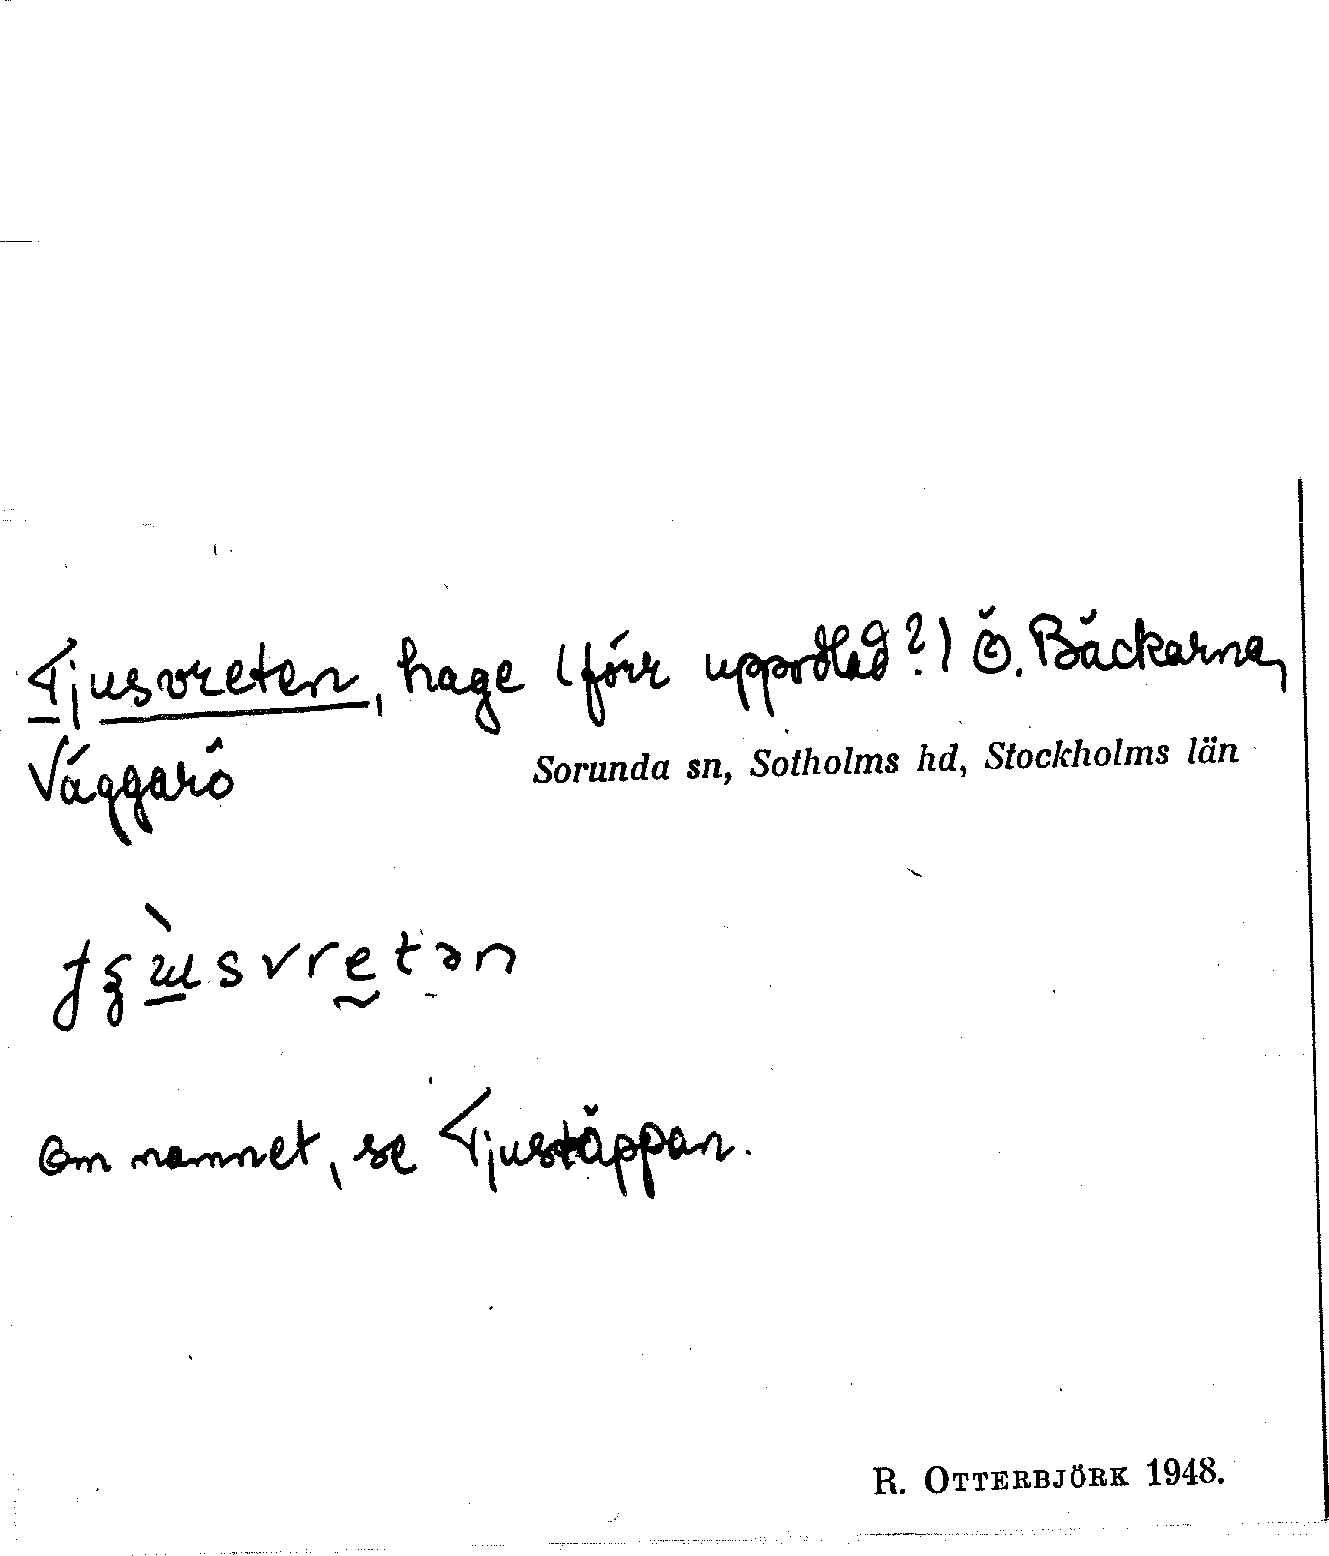 Tjusvreten, hage (förr uppodlad?) Ö. Bäckarne,
Väggarö
Sorunda sn, Sotholms hd, Stockholms län
Om namnet, se Tjustäppan.
R. OTTERBJÖRK 1948.